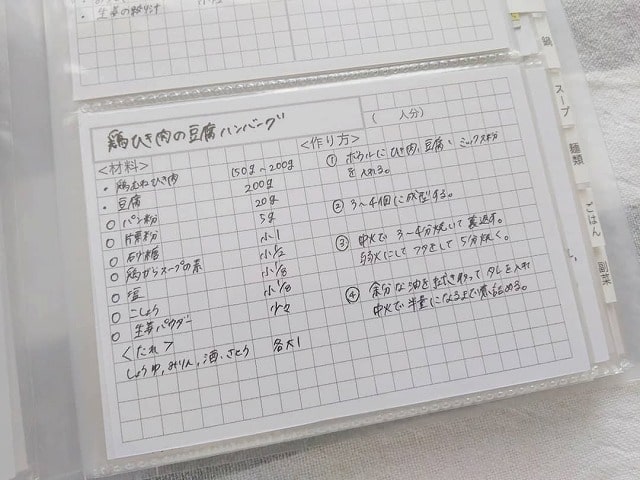 ・生姜の絞り汁
鶏ひき肉の豆腐ハンバーグ
( 人分)
<材料>
・鶏むねひき肉 150g~200g
・豆腐 200g
○ パン粉 20g
○ 片栗粉 5g
○ 砂糖 小1
○ 鶏がらスープの素 小1/2
○ 塩 小1/8
○ こしょう 小1/8
○ 生姜パウダー 小2
<たれ>
しょうゆ,みりん,酒,さとう 各大1
<作り方>
① ボウルにひき肉、豆腐、ミックス粉
を入れる。
② 3~4個に成型する。
③ 中火で3~4分焼いて裏返す。
弱火にしてフタをして5分焼く。
④ 余分な油をふきとって、タレを入れ
中火で半量になるまで煮詰める。
鍋
スープ
麺類
ごはん
副菜